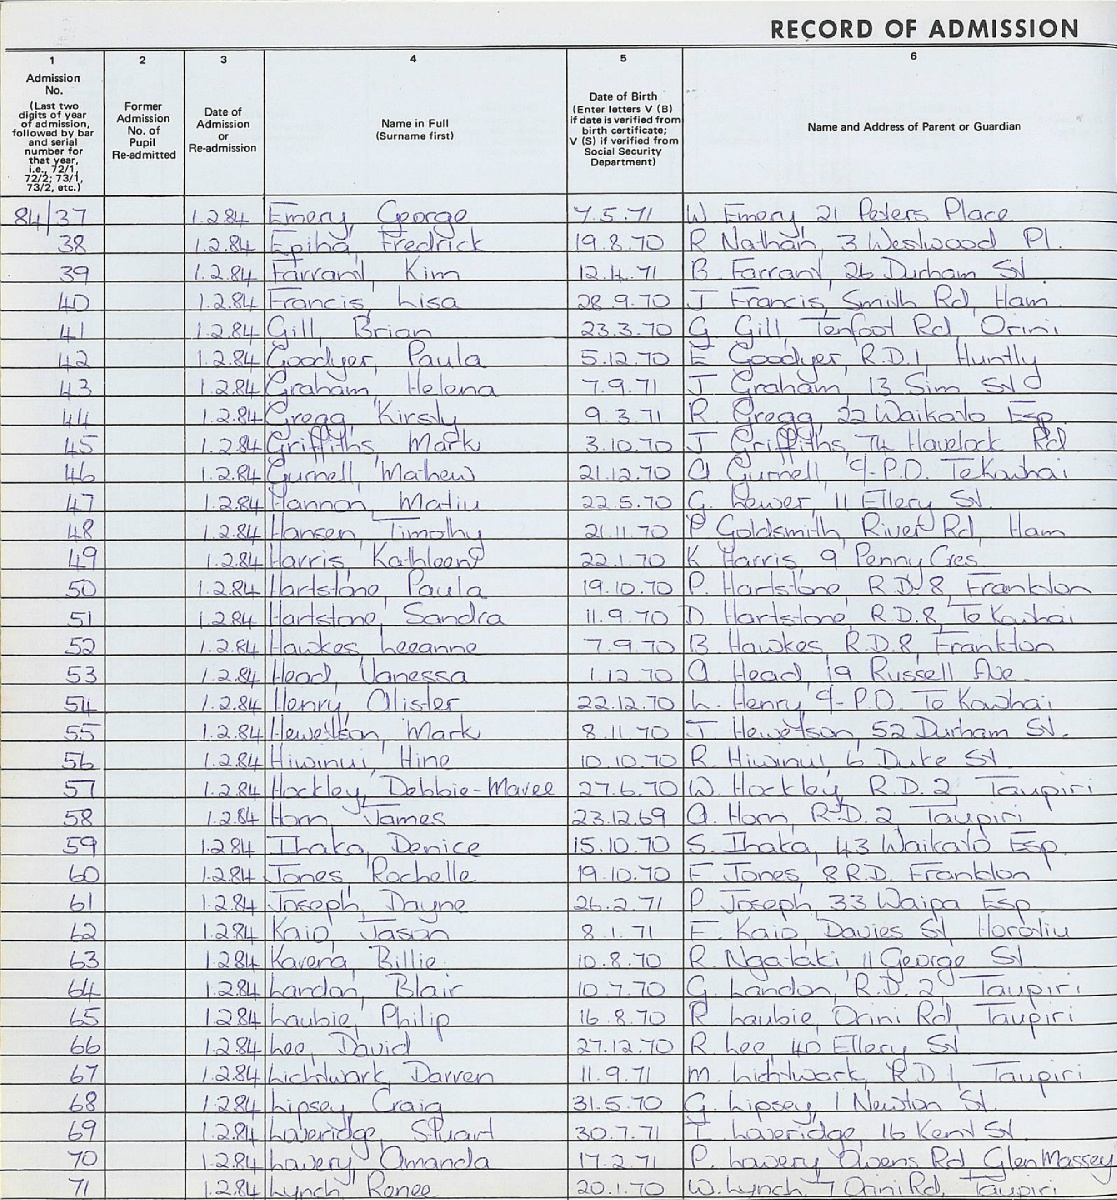 RECORD OF ADMISSION
1 2 3 4 5 6
Admission
No.
(Last two
digits of year
of admission,
followed by bar
and serial
number for
that year,
i.e., 72/1,
72/2; 73/1,
73/2, etc.)
Former
Admission
No. of
Pupil
Re-admitted
Date of
Admission
or
Re-admission
Name in Full
(Surname first)
Date of Birth
(Enter letters V (B)
if date is verified from
birth certificate;
V (S) if verified from
Social Security
Department)
Name and Address of Parent or Guardian
84/37 1.2.84 Emery, George 7.5.71 W. Emery 21 Peters Place
38 1.2.84 Epiha, Fredrick 19.8.70 R Nathan, 3 Westwood Pl.
39 1.2.84 Farrant, Kim 12.4.71 B. Farrant, 26 Durham St
40 1.2.84 Francis, Lisa 28.9.70 J Francis, Smith Rd, Ham
41 1.2.84 Gill, Brian 23.3.70 G. Gill Tenfoot Rd, Orini
42 1.2.84 Goodyer, Paula 5.12.70 E Goodyer, R.D.1 Huntly
43 1.2.84 Graham, Helena 7.9.71 J Graham, 13 Sim St
44 1.2.84 Gregg, Kirsty 9.3.71 R. Gregg, 22 Waikato Esp
45 1.2.84 Griffiths, Mark 3.10.70 J Griffiths, 74 Havelock Rd
46 1.2.84 Gurnell, Mathew 21.12.70 A Gurnell, c/- P.O. Te Kowhai
47 1.2.84 Hannon, Matiu 22.5.70 G. Lewer, 11 Ellery St.
48 1.2.84 Hansen, Timothy 21.11.70 P Goldsmith, River Rd, Ham
49 1.2.84 Harris, Kathleen 22.1.70 K Harris, 9 Penny Cres
50 1.2.84 Hartstone, Paula 19.10.70 P. Hartstone, R.D.8, Frankton
51 1.2.84 Hartstone, Sandra 11.9.70 D Hartstone, R.D.8, Te Kowhai
52 1.2.84 Hawkes, Leeanne 7.9.70 B Hawkes, R.D.8, Frankton
53 1.2.84 Head, Vanessa 1.12.70 A Head, 19 Russell Ave.
54 1.2.84 Henry, Alister 22.12.70 L. Henry, c/- P.O. Te Kowhai
55 1.2.84 Hewetson, Mark 8.11.70 J Hewetson, 52 Durham St.
56 1.2.84 Hiwinui, Hine 10.10.70 R Hiwinui, 6 Duke St
57 1.2.84 Hockley, Debbie-Maree 27.6.70 W. Hockley, R.D.2, Taupiri
58 1.2.84 Horn, James 23.12.69 A. Horn, R.D.2 Taupiri
59 1.2.84 Ihaka, Denice 15.10.70 S. Ihaka, 43 Waikato Esp.
60 1.2.84 Jones, Rochelle 19.10.70 F Jones, 8 R.D. Frankton
61 1.2.84 Joseph, Dayne 26.2.71 P. Joseph, 33 Waipa Esp
62 1.2.84 Kaio, Jason 8.1.71 E. Kaio, Davies St, Horotiu
63 1.2.84 Karena, Billie 10.8.70 R. Ngataki, 11 George St
64 1.2.84 Landon, Blair 10.7.70 G. Landon, R.D.2 Taupiri
65 1.2.84 Laubie, Philip 16.8.70 R Laubie, Orini Rd, Taupiri
66 1.2.84 Lee, David 27.12.70 R. Lee, 40 Ellery St
67 1.2.84 Lichtwark, Darren 11.9.71 M. Lichtwark, R.D.1, Taupiri
68 1.2.84 Lipsey, Craig 31.5.70 G. Lipsey, 1 Newton St.
69 1.2.84 Loveridge, Stuart 30.7.71 Loveridge, 16 Kent St.
70 1.2.84 Lowery, Amanda 17.2.71 P. Lowery, Owens Rd, Glen Massey
71 1.2.84 Lynch, Renee 20.1.70 W. Lynch, 7 Orini Rd, Taupiri